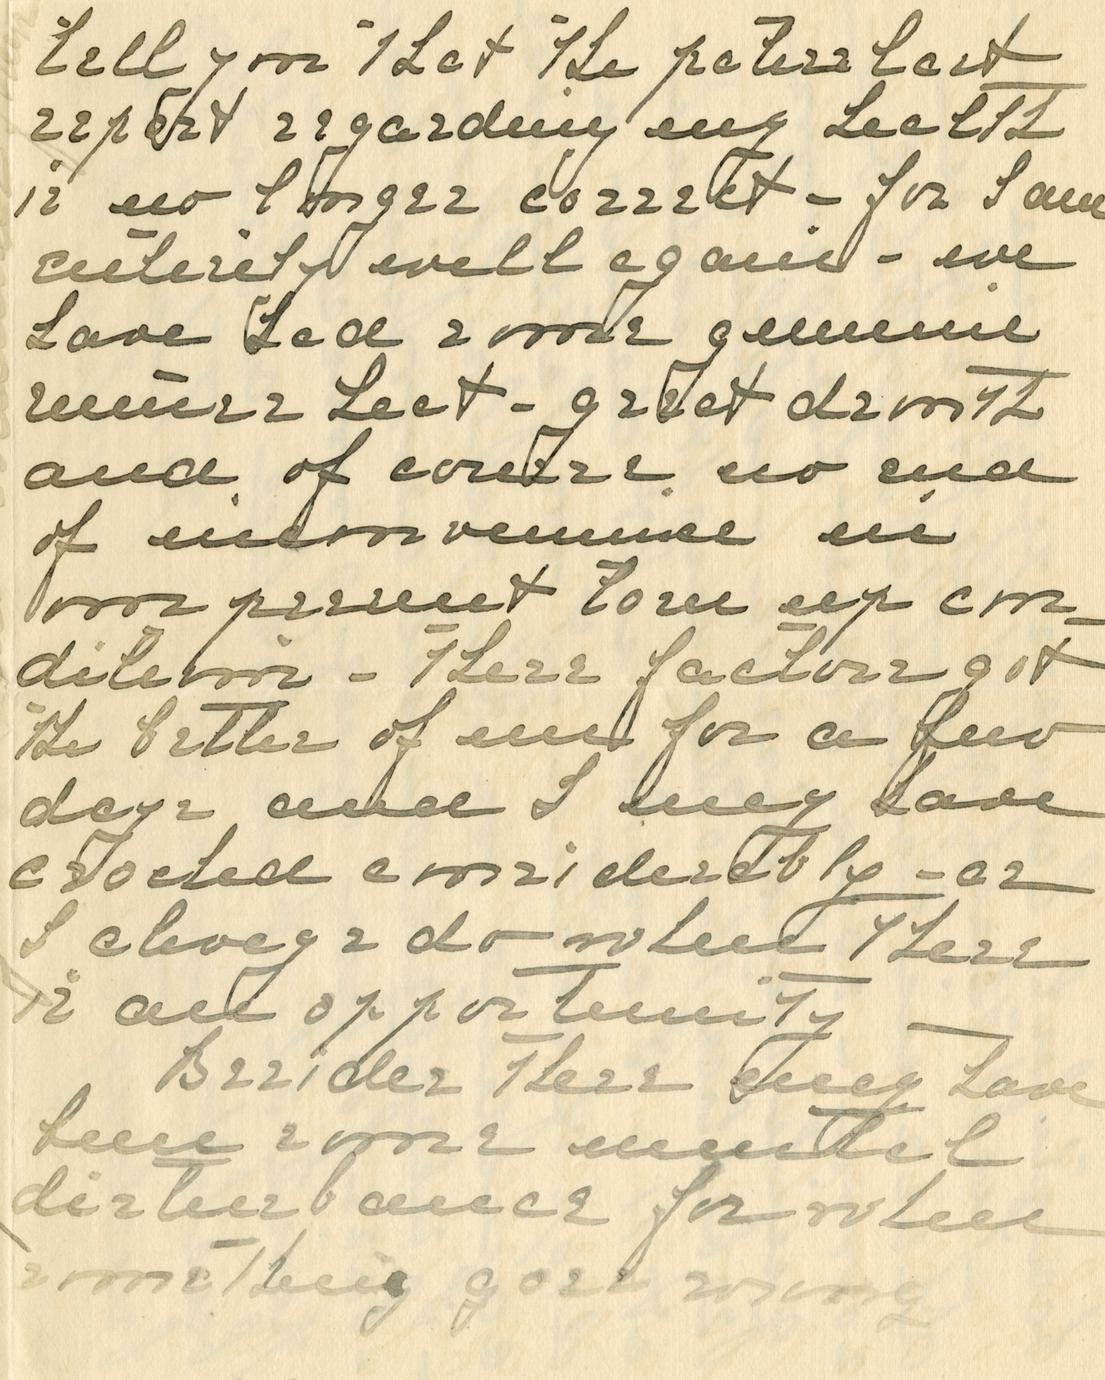 tell you that the paterr last
report regarding my health
is no longer correct - for I am
entirely well again - we
have had some genuine
summer heat - great drouth
and of course no end
of inconvenience in
our present torn up con-
dition - These factors got
the better of me for a few
days and I may have
croaked considerably - as
I always do when there
is an opportunity -
Besides there may have
been some mental
disturbance for when
something goes wrong